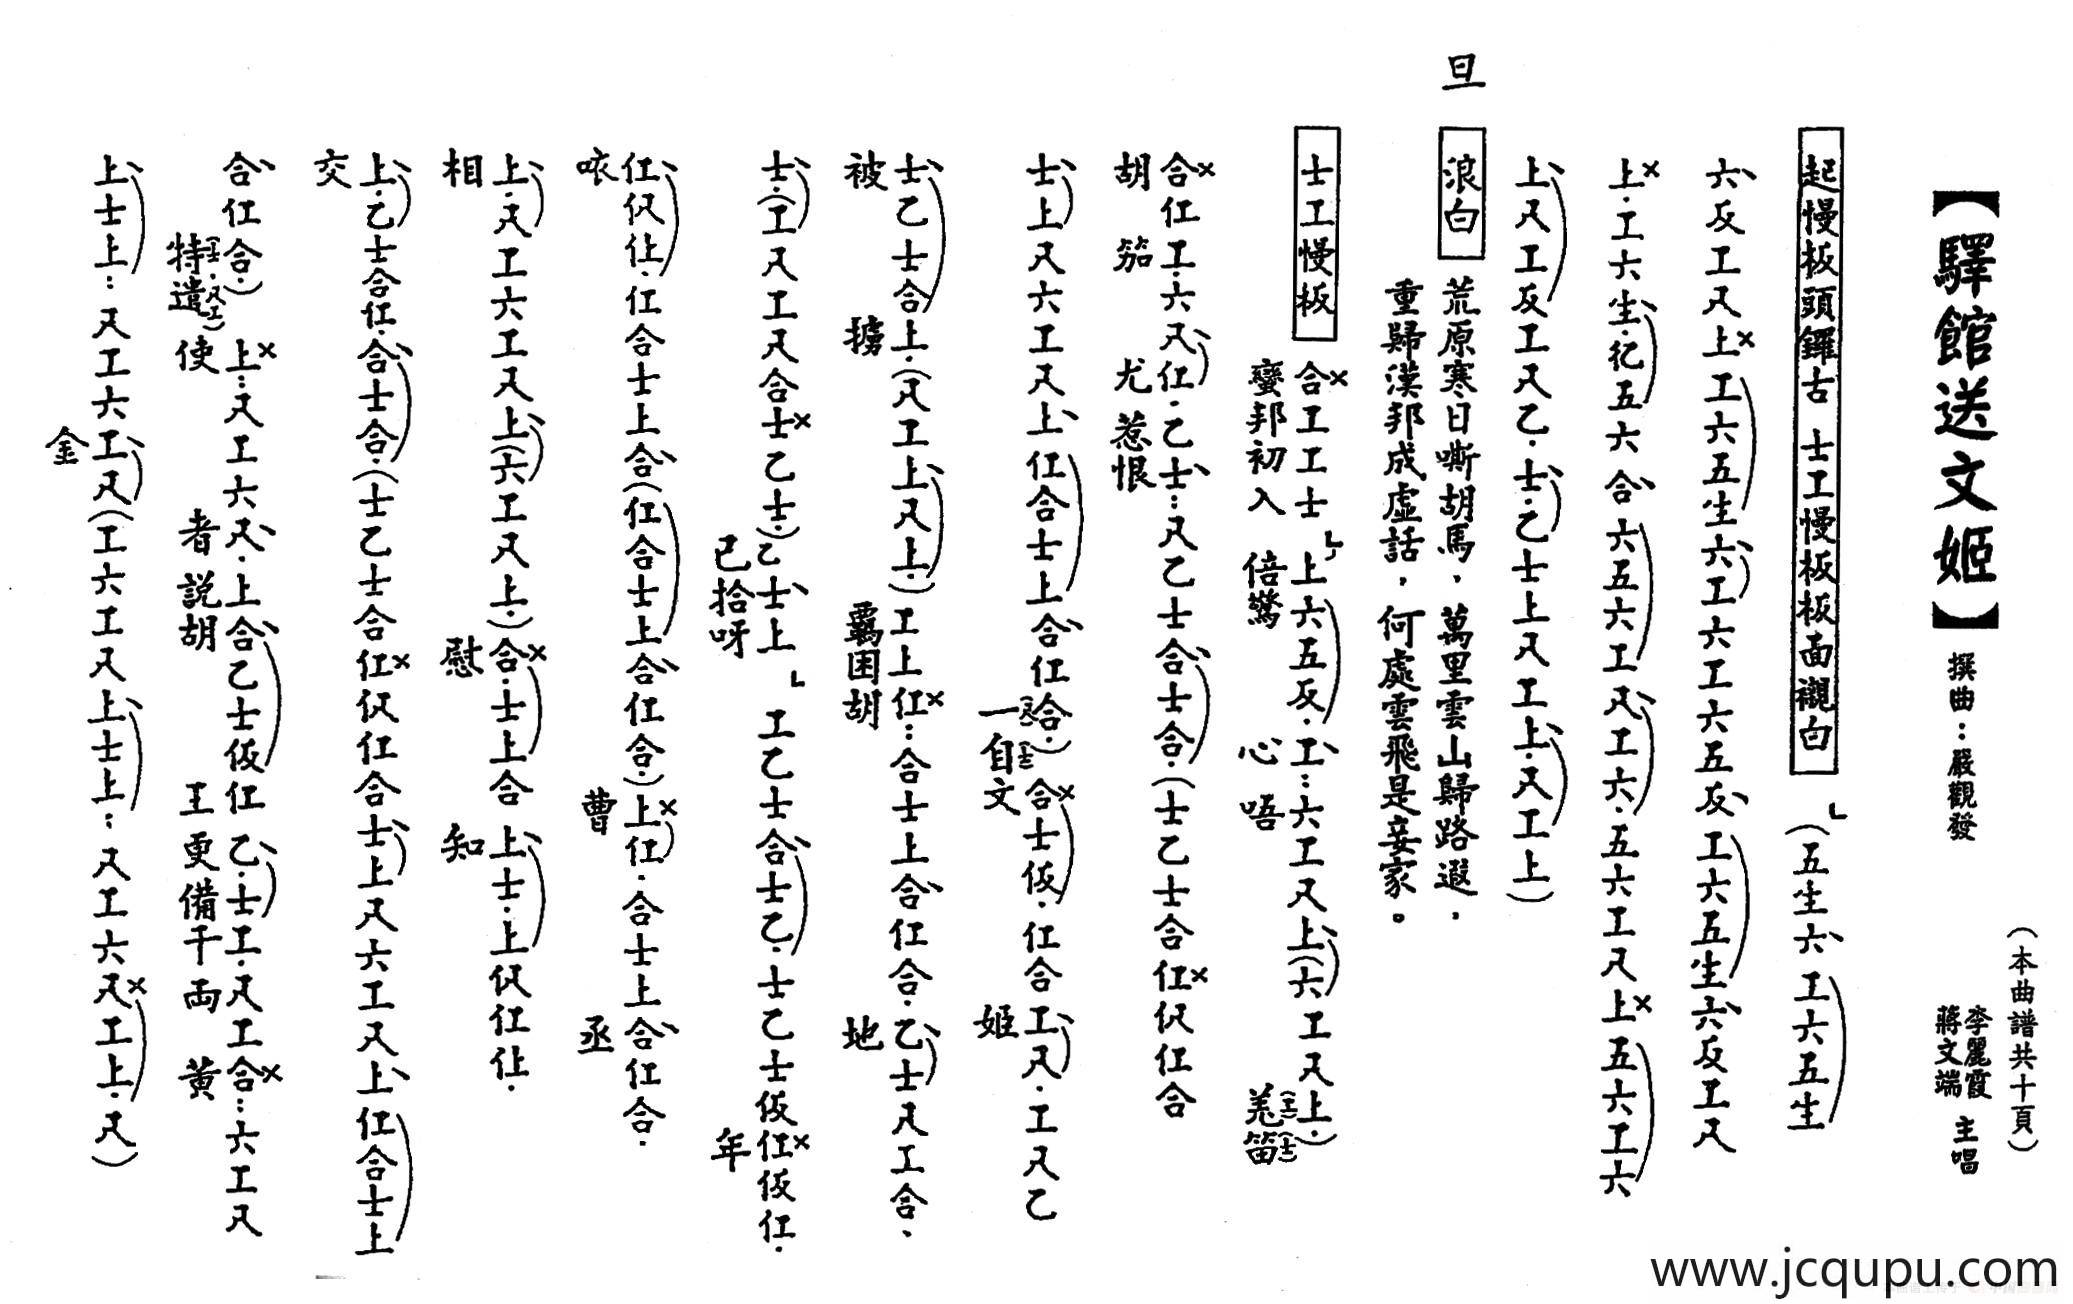 (本曲譜共十頁)
【驛館送文姬】 撰曲：嚴觀發 李麗霞 蔣文端 主唱
起慢板頭鑼古 士工慢板板面襯白 (五生六工六五生
六反工尺上工六五生六工六工六五反工六五生六反工尺
上．工六生．伬五六合六五六工尺工六．五六工尺上五六工六
上尺工反工尺乙．士．乙士上尺工上．尺工上)
旦 浪白 荒原寒日嘶胡馬，萬里雲山歸路遐，
重歸漢邦成虛話，何處雲飛是妾家。
士工慢板 合工工士 上六五反．工…六工尺上(六工尺上．)
蠻邦初入 倍驚 心 唔 羌笛
合仜工．六尺仜．乙士…尺乙士合士合．(士乙士合仜伬仜合
胡 笳 尤 惹恨
士上尺六工尺上仜合士上合仜合．)合士仮．仜合工尺．工尺乙
一自文 姬
士乙士合上．(尺工上尺上．)工上仜…合士上合仜合．乙士尺工合、
被 擄 羈困胡 地
士．(工尺工尺合士乙士．)乙士上 工乙士合士乙．士乙士仮仜仮仜．
已拾呀 年
仜伬仩．仜合士上合(仜合士上合仜合．)上仜．合士上合仜合．
咴 曹 丞
上．尺工六工尺上(六工尺上．)合．士上合上士．上伬仜仩．
相 慰 知
上．乙士合仜．合士合．(士乙士合仜伬仜合士上尺六工尺上仜合士上
交
合仜合．)上…尺工六尺．上合乙士仮仜乙．士工．尺工合…六工尺
特遣 使 者 說胡 王 更備千両 黃
上士上…尺工六工尺(工六工尺上士上…尺工六尺工上．尺)
金
www.jcqupu.com